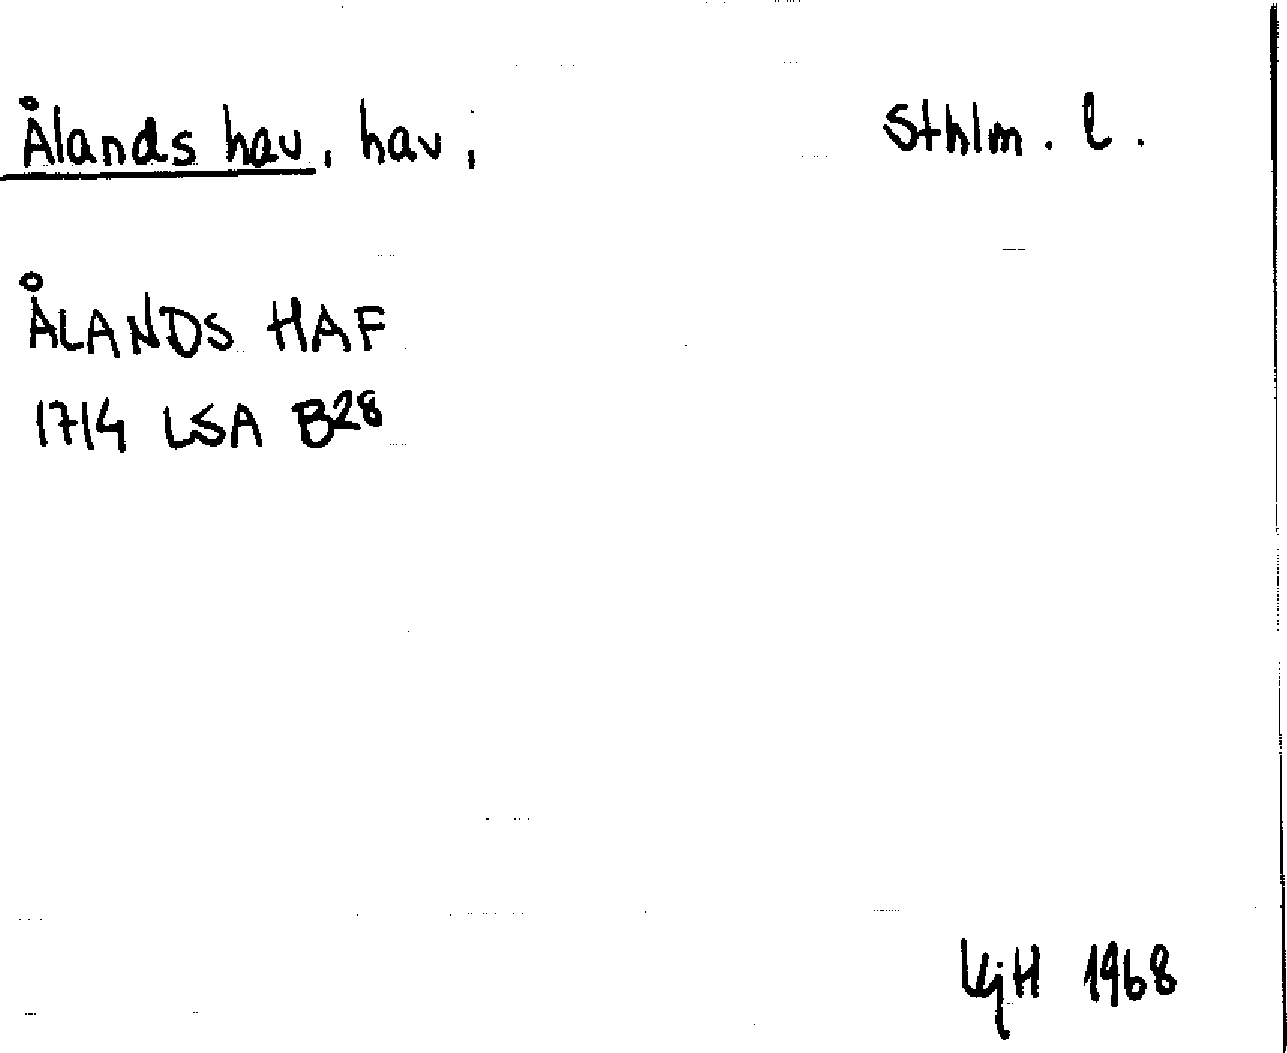 Ålands hav, hav, Sthlm. l.
ÅLANDS HAF
1714 LSA B28
KjH 1968